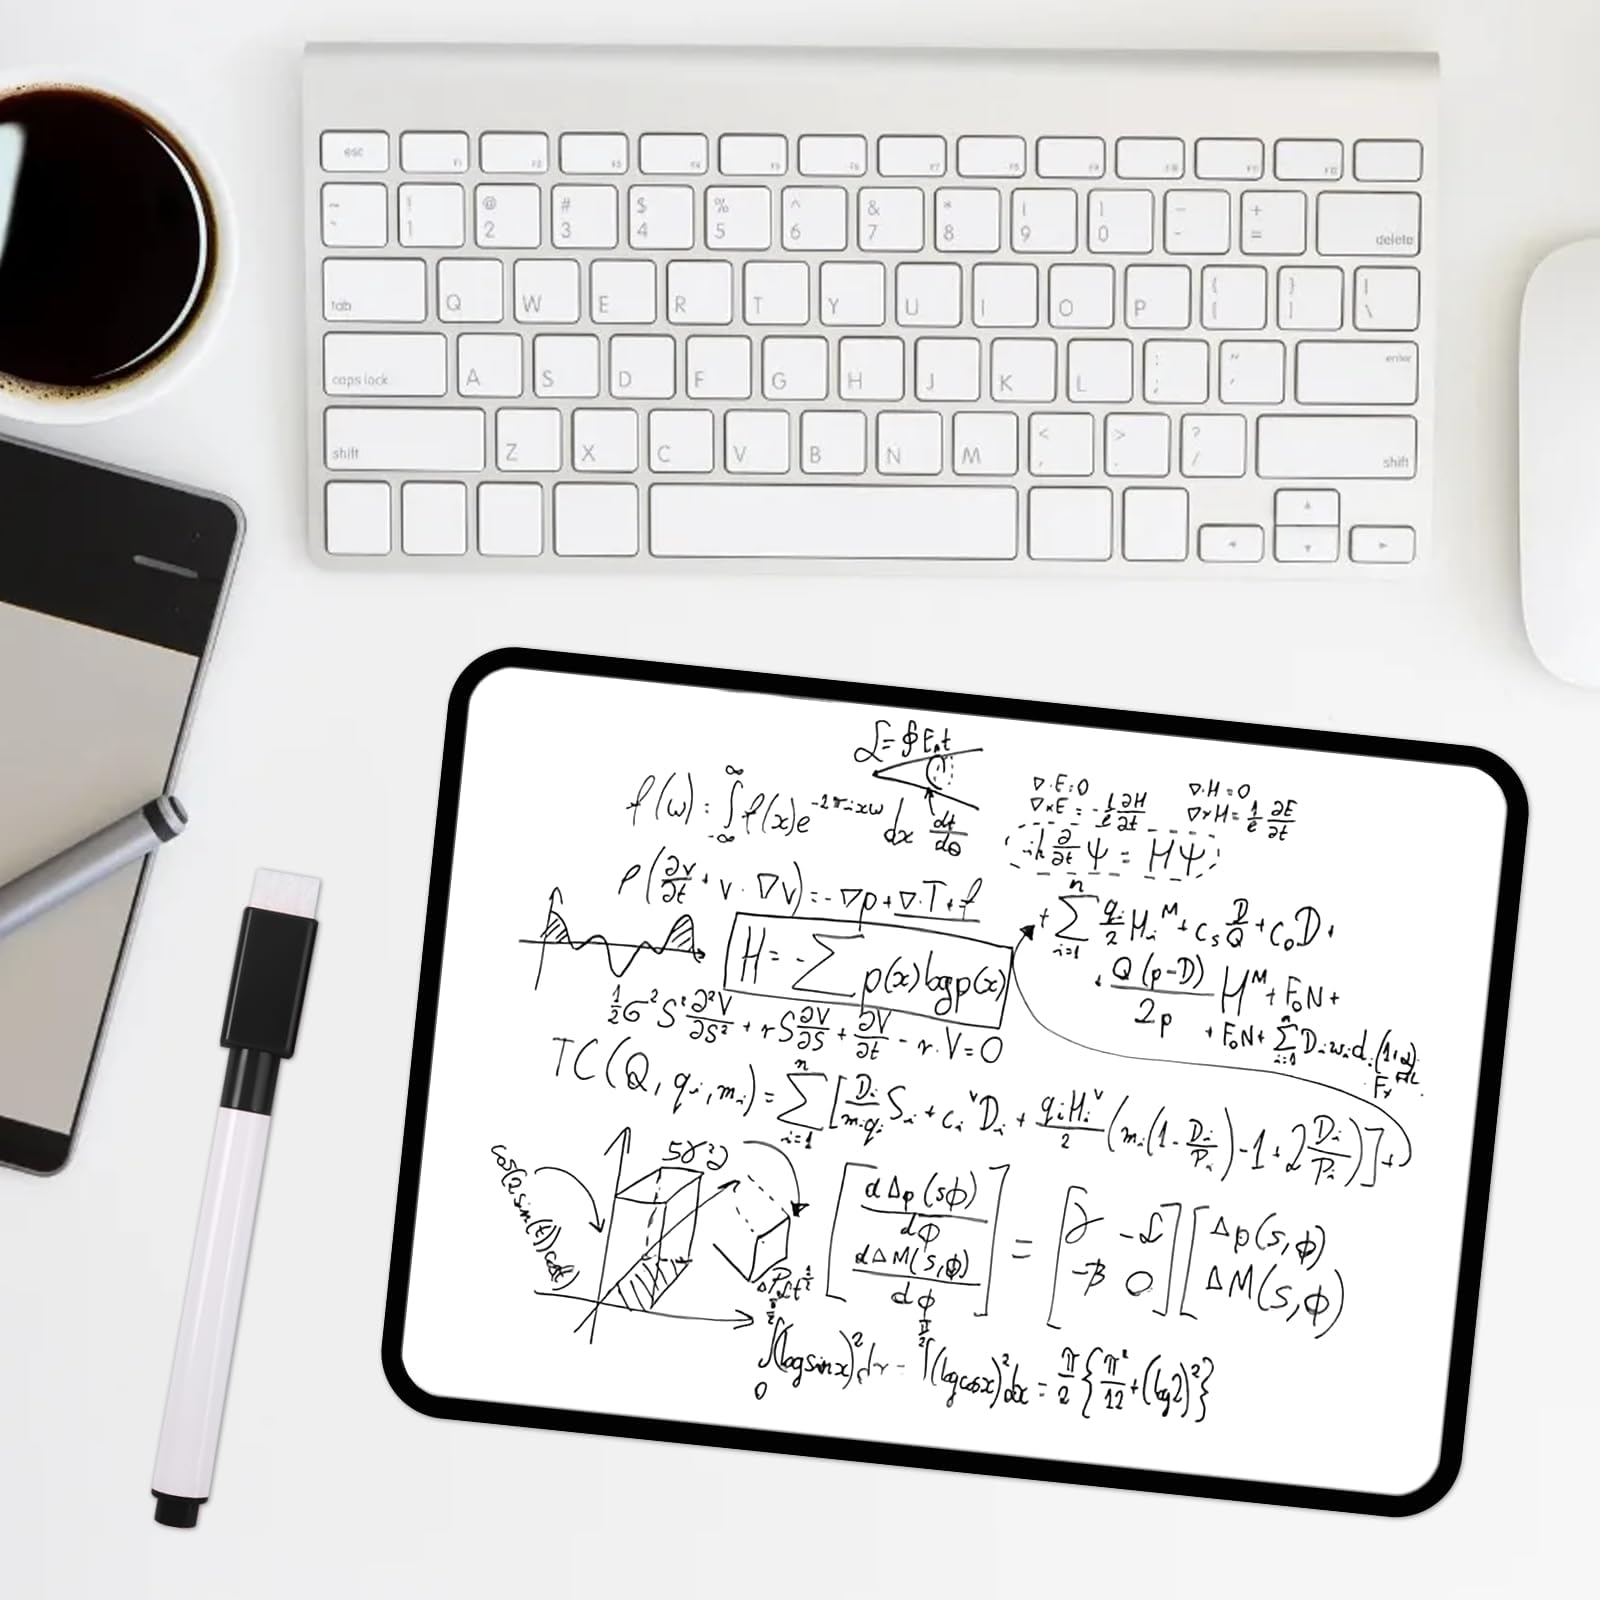 esc F1 F2 F3 F4 F5 F6 F7 F8 F9 F10 F11 F12
~ ` ! 1 @ 2 # 3 $ 4 % 5 ^ 6 & 7 * 8 9 0 - + = delete
tab Q W E R T Y U I O P { [ } ] | \
caps lock A S D F G H J K L : ; " ' enter
shift Z X C V B N M < , > . ? / shift
f(ω) : ∫_{-∞}^{∞} f(x)e^{-2πixω} dx
dt/dθ
∇·E=0 ∇·H=0
∇×E = -1/c ∂H/∂t ∇×H = 1/c ∂E/∂t
iħ ∂/∂t Ψ = HΨ
ρ(∂v/∂t + v·∇v) = -∇p + ∇·T + f
H = -∑ p(x) log p(x)
+ ∑_{i=1}^{n} q_i/2 H_i^M + c_s D/Q + c_o D +
+ Q(p-D)/2p H^M + F_oN +
1/2 σ² S² ∂²V/∂S² + rS ∂V/∂S + ∂V/∂t - r·V = 0
TC(Q, q_i, m_i) = ∑_{i=1}^{n} [D_i/(m_i q_i) S_i + c_i^v D_i + q_i H_i^v/2 (m_i(1 - D_i/P_i) - 1 + 2 D_i/P_i)] +
[dΔp(sφ)/dφ dΔM(s,φ)/dφ] = [∂ -£ -β 0] [Δp(s,φ) ΔM(s,φ)]
∫_0^{π/2} (log sin x)² dx = ∫^{π/2} (log cos x)² dx = π/2 {π²/12 + (log 2)²}